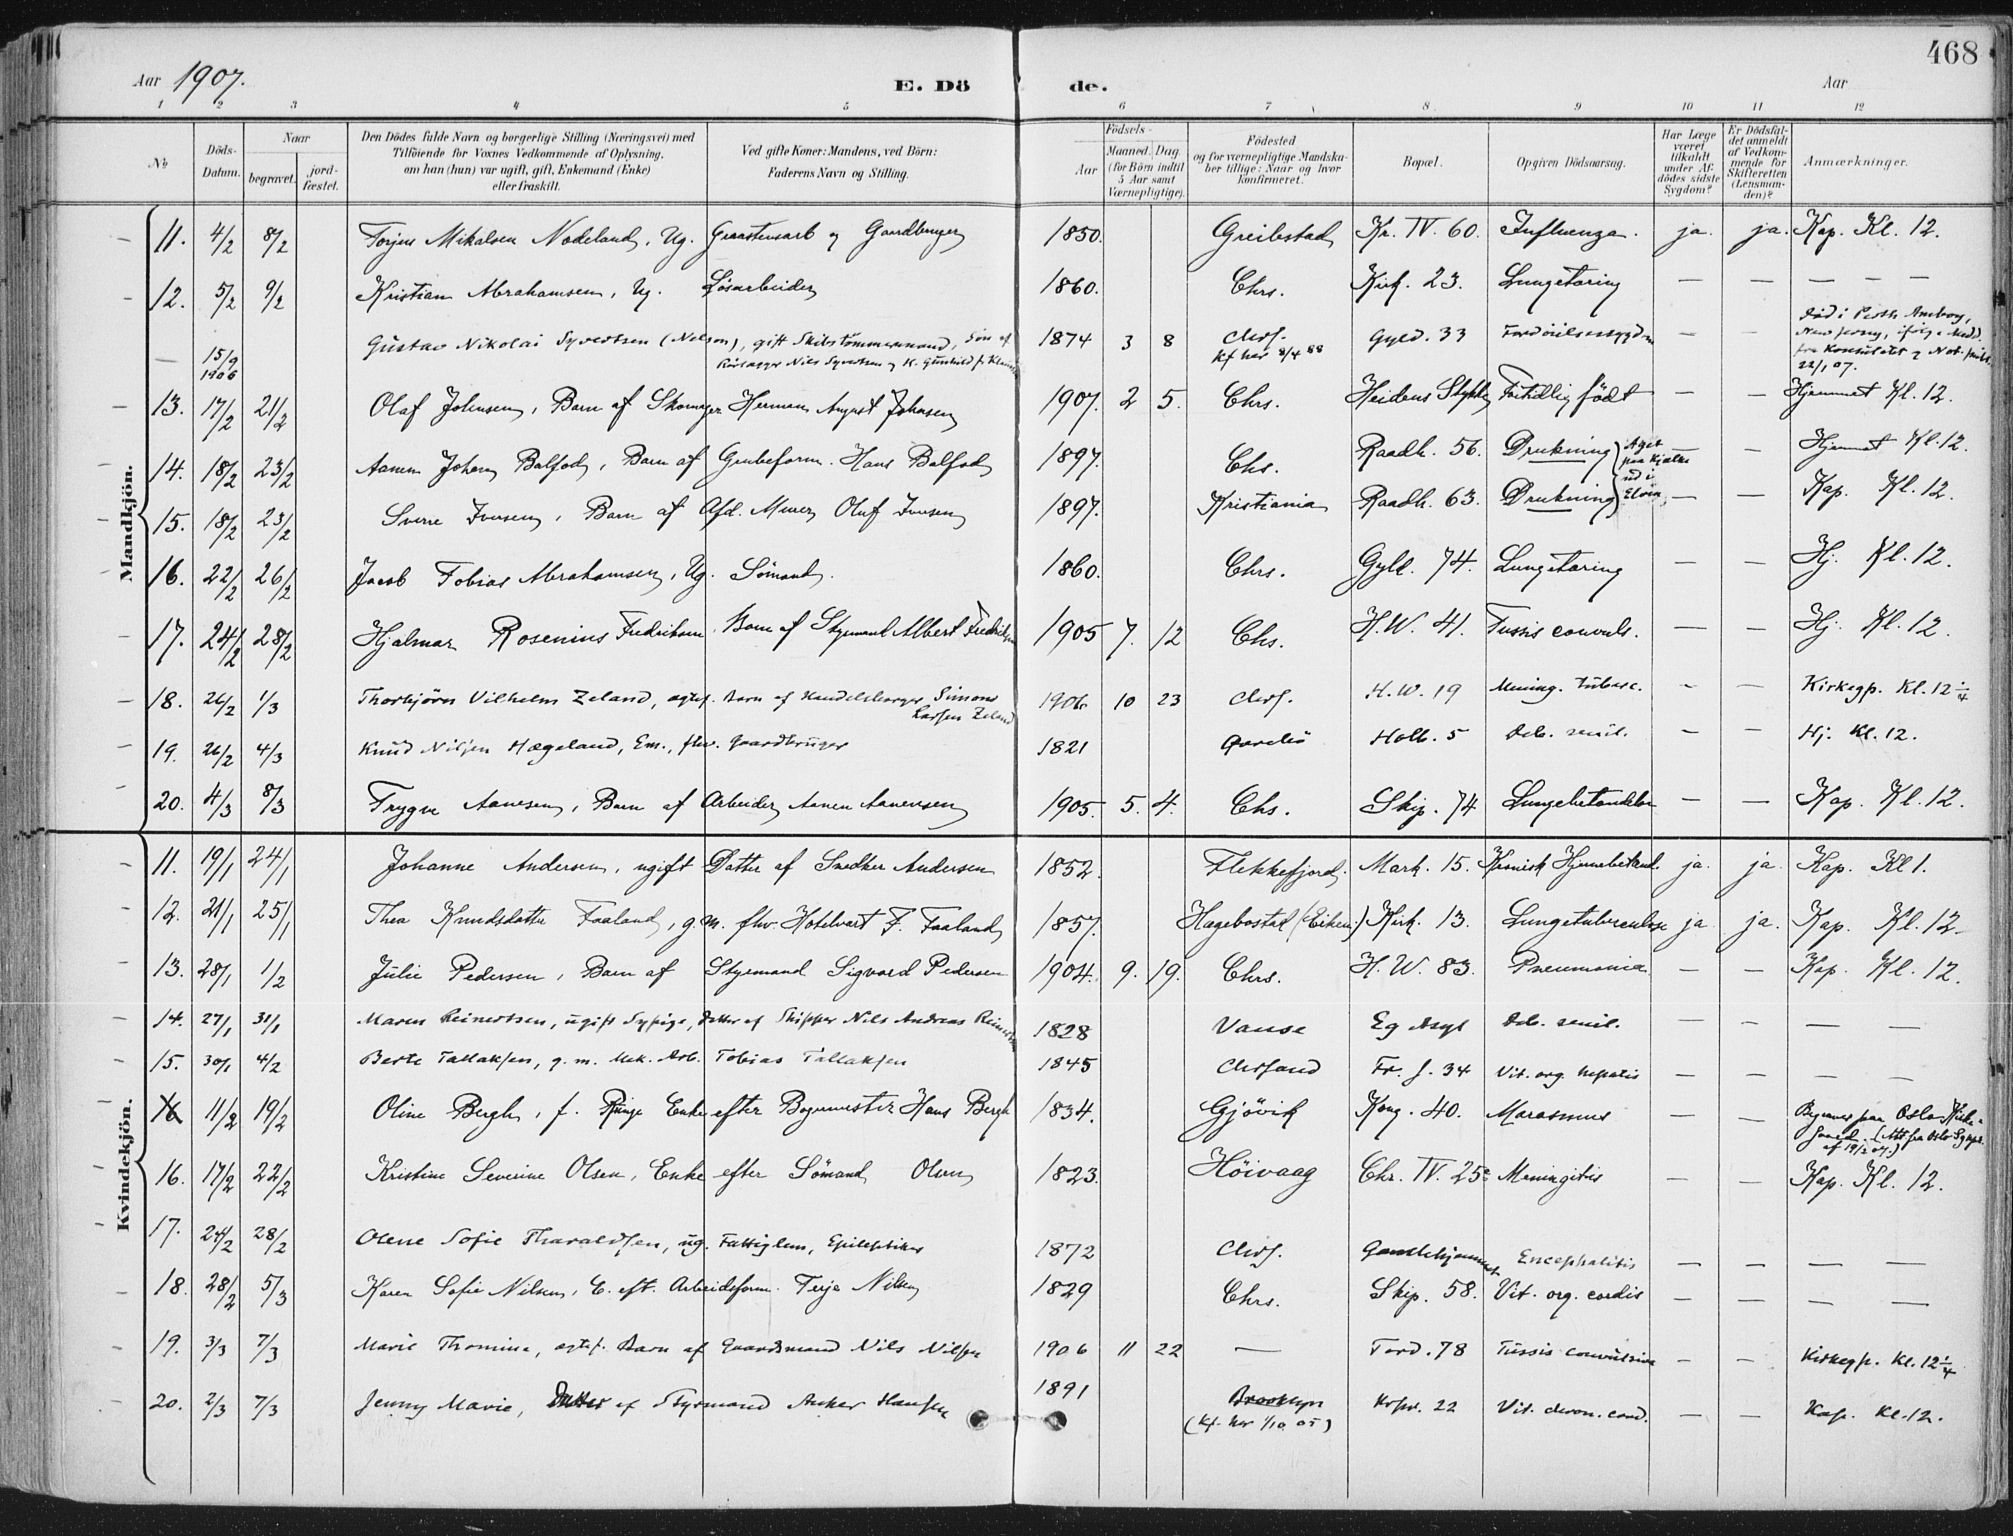 468
Aar 1907. E. Döde. Aar
1 2 3 4 5 6 7 8 9 10 11 12
No
Döds-Datum.
Naar
begravet.
jord-fæstet.
Den Dödes fulde Navn og borgerlige Stilling (Næringsvei) med
Tilföiende for Voxnes Vedkommende af Oplysning,
om han (hun) var ugift, gift, Enkemand (Enke)
eller fraskilt.
Ved gifte Koner: Mandens, ved Börn:
Faderens Navn og Stilling.
Födsels-
Aar
Maaned. Dag
(for Börn indtil
5 Aar samt
Værnepligtige).
Födested
og for værnepligtige Mandska-
ber tillige: Naar og hvor
konfirmeret.
Bopæl.
Opgiven Dödsaarsag.
Har Læge
været
tilkaldt
under Af-
dödes sidste
Sygdom?
Er Dödsfal-
det anmeldt
af Vedkom-
mende for
Skifteretten
(Lensman-
den)?
Anmærkninger.
Mandkjön.
11. 4/2 8/2 Torjus Mikalsen Nodeland, Ug. Graastensarb og Gaardbruger 1850. Greibstad Kr. IV. 60. Influenza. ja. ja. Kap. Kl. 12.
12. 5/2 9/2 Kristian Abrahamsen, Ug. Løsarbeider 1860. Chrs. Kirk. 23. Lungetæring — — — — —
— 15/9 1906 Gustav Nikolai Syvertsen (Nelson), gift Skibstömmermand, Sön af Nils Syvertsen og K. Gunhild 1874 3 8 Chrs. Kf her 8/4 88 Gyld. 33 — — Död i Perth Amboy, New Jersey, ifölge Medd. fra Konsulatet 22/1 07.
13. 17/2 21/2 Olaf Johnsen, Barn af Skomager Herman August Johnsen 1907. 2 5. Chrs. Heidens Stykke Fortidlig født — — Hjemmet Kl. 12.
14. 18/2 23/2 Aanen Johan Balfod, Barn af Grubeform. Hans Balfod 1897. Chs. Raadh. 56. Drukning — — Hjemmet Kl. 12.
Aget paa Kjælke ud i Elven
15. 18/2 23/2 Sverre Iversen, Barn af Afd. Murer Oluf Iversen 1897. Kristiania Raadh. 63. Drukning — — Kap. Kl. 12.
16. 22/2 26/2 Jacob Tobias Abrahamsen, Ug. Sømand. 1860. Chrs. Gyld. 74. Lungetæring — — Hj. Kl. 12.
17. 24/2 28/2 Hjalmar Rosenius Fredriksen. Barn af Styrmand Albert Fredriksen 1905 7. 12 Chs. H.W. 41. Tussis convuls. — — Hj. Kl. 12.
18. 26/2 1/3 Thorbjörn Vilhelm Zeland, ægtef. Barn af Handelsborger Simon Larsen Zeland 1906 10 23 Chrs. H.W. 19 Mening. tuberc. — — Kirkegp. Kl. 12 1/4
19. 26/2 4/3 Knud Nilsen Hægeland, Em., fhv. Gaardbruger 1821 Holb. 5 Deb. senil. — — Hj. Kl. 12.
20. 4/3 8/3 Trygve Aanesen, Barn af Arbeider Aanen Aanensen 1905. 5. 4. Chs. Skip. 74 Lungebetændelse — — Kap. Kl. 12.
Kvindekjön.
11. 19/1 24/1 Johanne Andersen, ugift Datter af Snedker Andersen 1852. Flekkefjord. Mark. 15. Kronisk Hjernebetænd. ja. ja. Kap. Kl 1.
12. 21/1 25/1 Thea Knudsdatter Faaland, g.m. fhv. Hotelvært F. Faaland 1857. Hægebostad (Eiken) Kirk. 13. Lungetuberculose ja ja. Kap. Kl. 12.
13. 28/1 1/2 Julie Pedersen, Barn af Styrmand Sigvard Pedersen 1904. 9. 19. Chrs. H.W. 83. Pneumonia — — Kap. Kl. 12.
14. 27/1 31/1 Maren Reinertsen, ugift Sypige, Datter af Skipper Nils Andreas Reinertsen 1828 Vanse Eg Asyl Deb. senil. — — — — —
15. 30/1 4/2 Berte Tallaksen, g. m. Mek. Arb. Tobias Tallaksen 1845 Chrsand Fr. g. 34 Vit. org. hepatis — — — — —
16 11/2 19/2 Oline Bergh, f. Ringe Enke efter Bogmester Hans Bergh 1834. Gjøvik Kong. 40. Marasmus — — Begraves paa Oslo Kirkegaard. (Att fra Oslo Sgkpr. af 19/2 07.)
16. 17/2 22/2 Kristine Severine Olsen, Enke efter Sømand Olsen 1823. Høivaag Chr. IV. 25 Meningitis — — Kap. Kl. 12.
17. 24/2 28/2 Olene Sofie Tharaldsen, ug. Fattiglem, Epileptiker 1872 Chrs. Gamlehjemmet Encephalitis — — — —
18. 28/2 5/3 Karen Sofie Nilsen, E. eft. Arbeidsform. Terje Nilsen 1829 Chrs. Skip. 58. Vit. org. cordis — — — —
19. 3/3 7/3 Marie Thomine, ægtef. Barn af Gaardsmand Nils Nilsen 1906 11 22 — Tord. 78 Tussis convulsiva — — Kirkegp. Kl. 12 1/4
20. 2/3 7/3 Jenny Marie, Datter af Styrmand Anker Hansen 1891 Brooklyn (Kf. her 1/10 05) Krpr. 22 Vit. — — Kap. Kl. 12.